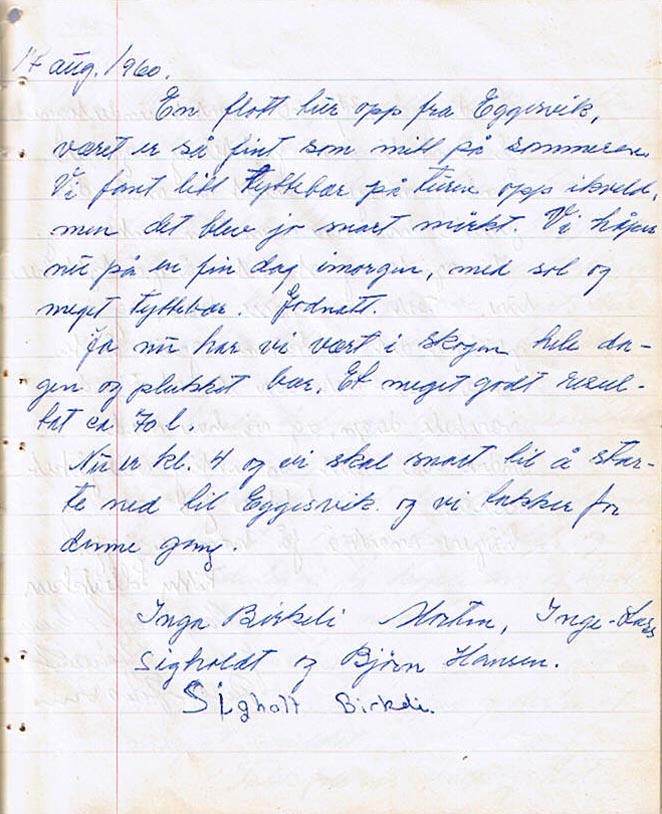 17 aug. 1960.
En flott tur opp fra Eggesvik,
været er så fint som mitt på sommeren.
Vi fant litt tyttebær på turen opp ikveld,
men det blev jo snart mörkt. Vi håper
nu på en fin dag imorgen, med sol og
meget tyttebær. Godnatt.
Ja nu har vi vært i skogen hele da-
gen og plukket bær. Et meget godt resul-
tat ca 70 l.
Nu er kl. 4 og vi skal snart til å star-
te ned til Eggesvik og vi takker for
denne gang.
Inga Birkeli Morten, Inge-Lars
Sigholdt og Björn Hansen.
Sigholt Birkeli.